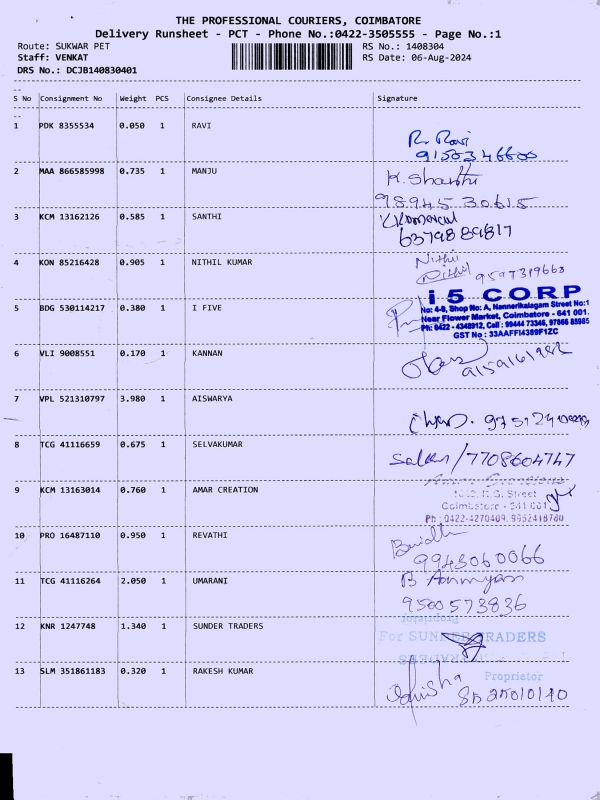 THE PROFESSIONAL COURIERS, COIMBATORE
Delivery Runsheet - PCT - Phone No.:0422-3505555 - Page No.:1
Route: SUKWAR PET RS No.: 1408304
Staff: VENKAT RS Date: 06-Aug-2024
DRS No.: DCJB140830401
S No Consignment No Weight PCS Consignee Details Signature
1 PDK 8355534 0.050 1 RAVI
R. Ravi
9150346600
2 MAA 866585998 0.735 1 MANJU
K. Shanthi
98945 30615
3 KCM 13162126 0.585 1 SANTHI
6379889817
4 KON 85216428 0.905 1 NITHIL KUMAR
Nithil
Nithil 9597319668
5 BDG 530114217 0.380 1 I FIVE
i 5 CORP
No: 4-9, Shop No: A, Nannerikalagam Street No:1
Near Flower Market, Coimbatore - 641 001.
Ph: 0422 - 4348912, Cell : 99444 73346, 97866 85985
GST No : 33AAFFI4389F1ZC
6 VLI 9008551 0.170 1 KANNAN
7 VPL 521310797 3.980 1 AISWARYA
8 TCG 41116659 0.675 1 SELVAKUMAR
/7708604747
9 KCM 13163014 0.760 1 AMAR CREATION
R.G. Street
Coimbatore - 641 001
Ph : 0422-4270409, 9952418780
10 PRO 16487110 0.950 1 REVATHI
9943060066
11 TCG 41116264 2.050 1 UMARANI
B
9500573836
12 KNR 1247748 1.340 1 SUNDER TRADERS
Proprietor
For SUNDER TRADERS
13 SLM 351861183 0.320 1 RAKESH KUMAR
Proprietor